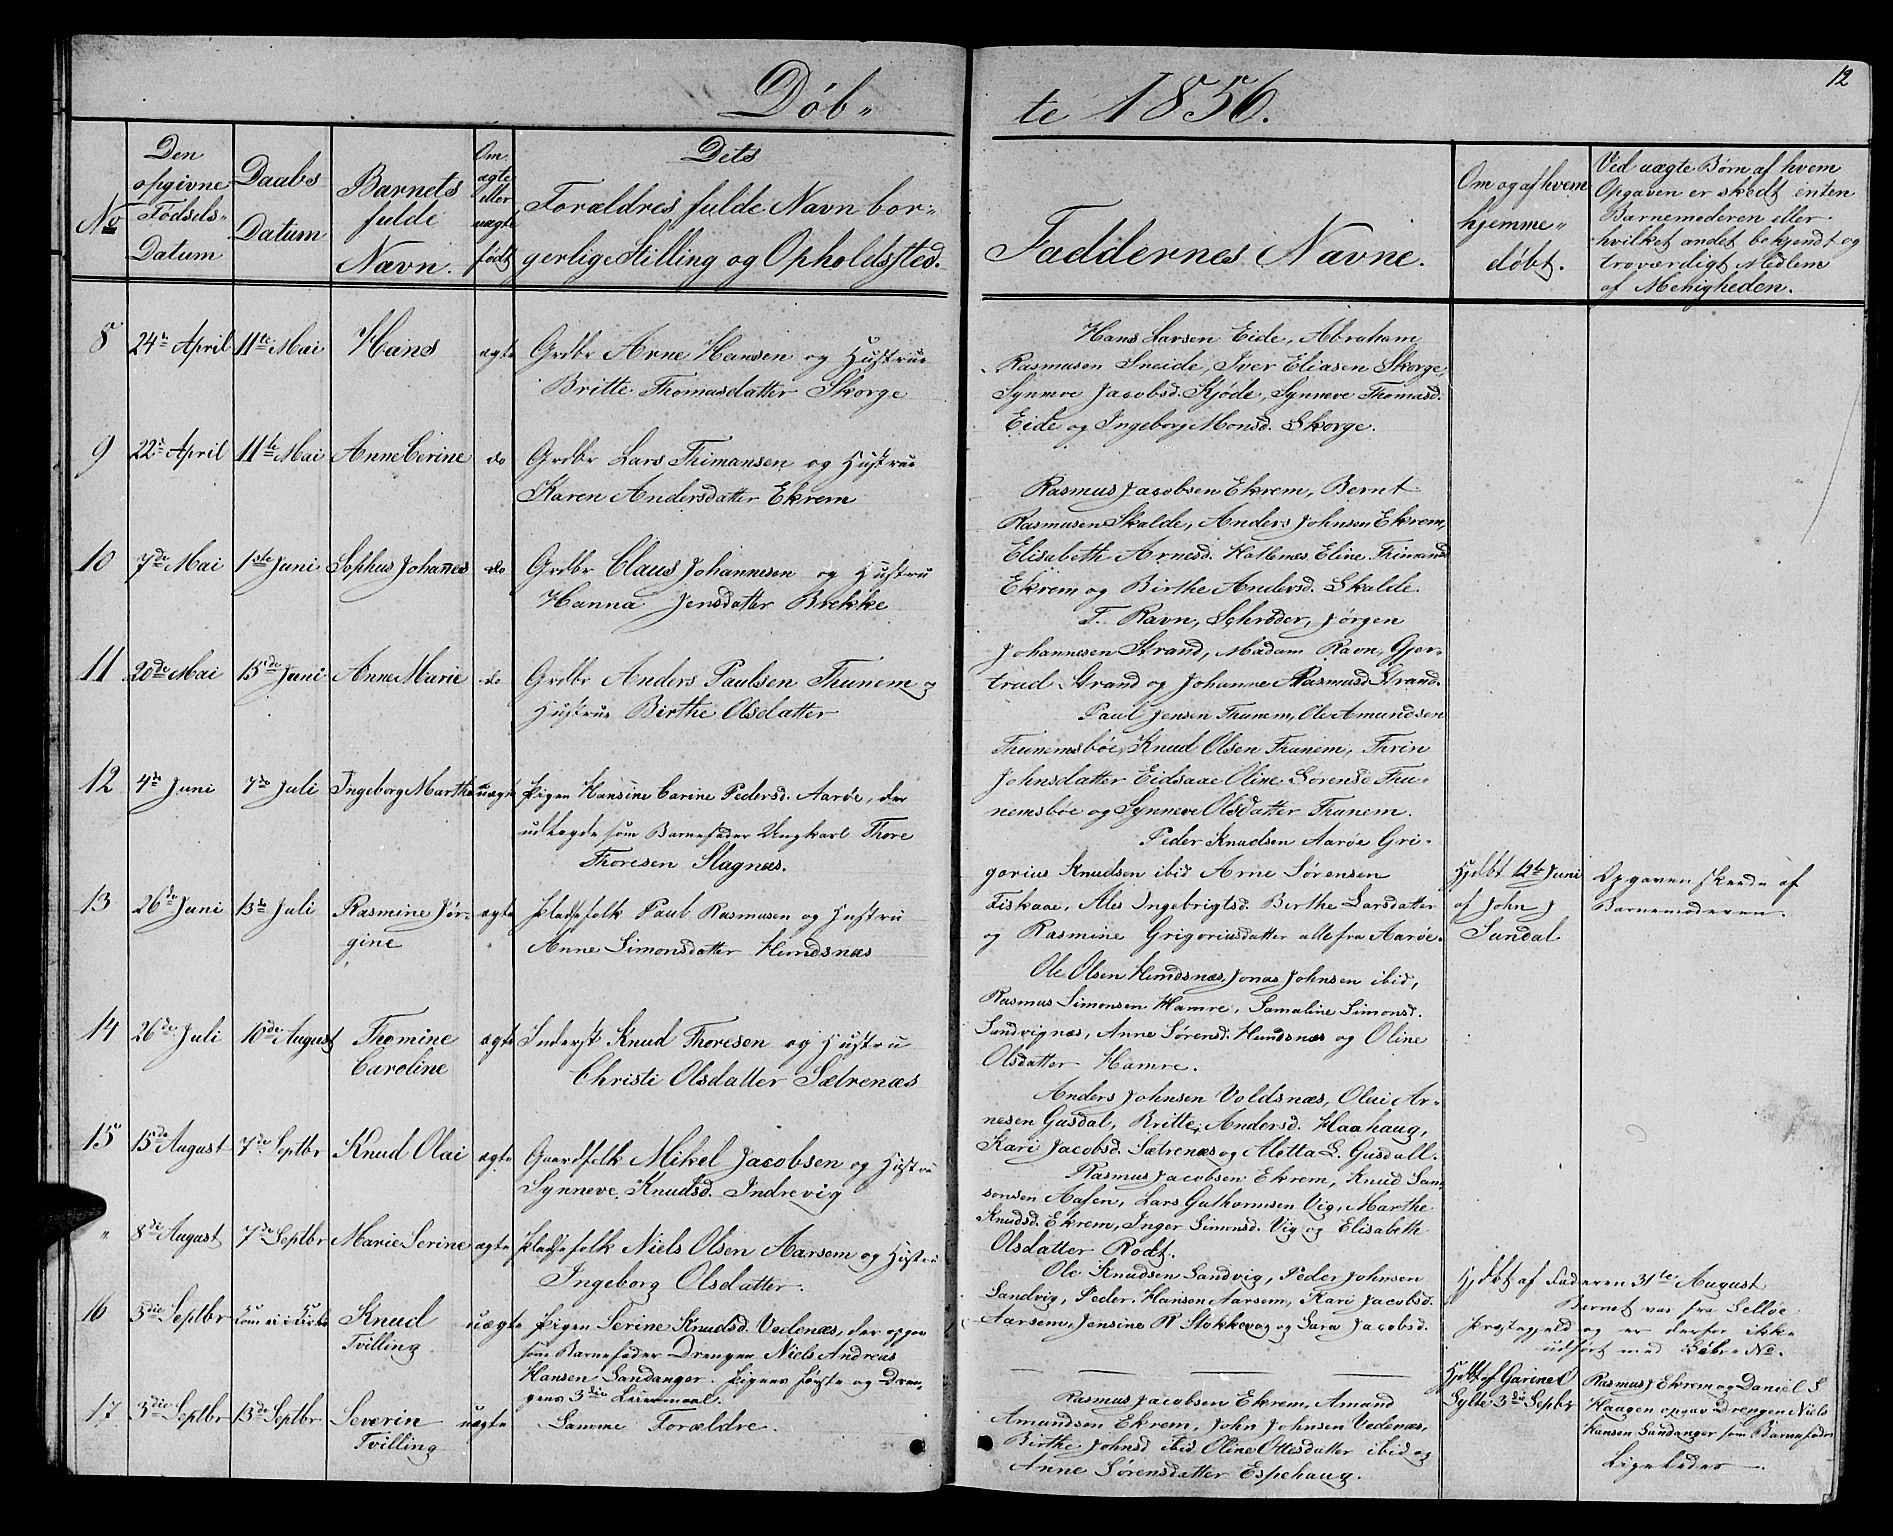 Døb-
No
Den
opgivne
Fødsels-
Datum
Daabs
Datum
Barnets
fulde
Navn.
Om
ægte
eller
uægte
født
Dets
Forældres fulde Navn bor-
gerlige Stilling og Opholdssted.
8 24de April 11te Mai Hans ægte Grdbr Arne Hansen og Hustrue
Britte Thomasdatter Skorge
9 22de April 11te Mai Anne Cerine do Grdbr Lars Thimansen og Hustrue
Karen Andersdatter Ekrem
10 7de Mai 1ste Juni Sophus Johannes do Grdbr Claus Johannesen og Hustru
Hanna Jensdatter Brekke
11 20de Mai 15de Juni Anne Marie do Grdbr Anders Paulsen Thunem og
Hustrue Birthe Olsdatter
12 4de Juni 7de Juli Ingeborg Marthe uægte Pigen Hansine Carine Pedersd. Aarøe, der
udlagde som Barnefader Ungkarl Thore
Thoresen Slagnæs.
13 26de Juni 13de Juli Rasmine Jør- ægte Pladsfolk Paul Rasmusen og Hustru
gine Anne Simonsdatter Hundsnæs
14 26de Juli 10de August Thomine ægte Inderst Knud Thoresen og Hustru
Caroline Christi Olsdatter Sætrenæs
15 15de August 7de Septbr Knud Olai ægte Gaardfolk Mikel Jacobsen og Hustru
Synneve Knudsd. Indrevig
" 8de August 7de Septbr Marie Serine ægte Pladsefolk Niels Olsen Aarsem og Hustru
Ingeborg Olsdatter.
16 3die Septbr Kom ei i Kirke Knud uægte Pigen Serine Knudsd. Vedenæs, der opgav
Tvilling som Barnefader Drengen Niels Andreas
Hansen Sandanger. Pigens første og Dren-
gens 3die Leiermaal.
17 3die Septbr 13de Septbr Severin uægte Samme Forældre.
Tvilling
te 1856.
12
Faddernes Navne.
Om og af hvem
hjemme-
døbt.
Ved uægte Børn af hvem
Opgaven er skedt enten
Barnemoderen eller
hvilket andet bekjendt og
troværdigt Medlem
af Menigheden.
Hans Larsen Eide, Abraham
Rasmusen Sneide, Iver Eliasen Skorge,
Synnove Jacobsd. Kjøde, Synneve Thomasd.
Eide og Ingeborg Monsd. Skorge.
Rasmus Jacobsen Ekrem, Bernt
Rasmusen Skalde, Anders Johnsen Ekrem,
Elisabeth Arnesd. Eline Thimansd
Ekrem og Birthe Andersd. Skalde.
T. Ravn, Schrøder, Jørgen
Johannesen Strand, Madam Ravn, Gjer-
trud Strand og Johanne Rasmusd Strand.
Paul Jensen Thunem, Ole Amundsen
Thunemsbøe, Knud Olsen Thunem, Thrin
Johnsdatter Eidsaae Oline Sørensd Thu-
nemsbøe og Synneve Olsdatter Thunem.
Peder Knudsen Aarøe Gri-
gorius Knudsen ibid Arne Sørensen
Fiskaae, Ales Ingebrigtsd. Berthe Larsdatter
og Rasmine Grigoriusdatter alle fra Aarøe.
Hjdbt 12te Juni
af John J
Sundal
Opgaven skeede af
Barnemoderen.
Ole Olsen Hundsnæs, Jonas Johnsen ibid,
Rasmus Simonsen Hamre, Samaline Simonsd.
Sandvignæs, Anne Sørensd. Hundsnæs og Oline
Olsdatter Hamre.
Anders Johnsen Voldsnæs, Olai Ar-
nesen Gusdal, Britte Andersd. Haahaug,
Kari Jacobsd. Sætrenæs og Aletta L. Gusdall.
Rasmus Jacobsen Ekrem, Knud Sam-
sonsen Aasen, Lars Guthormsen Vig, Marthe
Knudsd. Ekrem, Inger Simonsd. Vig og Elisabeth
Olsdatter Rødt.
Ole Knudsen Sandvig, Peder Johnsen
Sandvig, Peder Hansen Aarsem, Kari Jacobsd.
Aarsem, Jensine R Stokkevag og Sara Jacobsd.
Hjdbt af Faderen 31te August
Barnet var fraSelløe
Præstegjeld og er derfor ikke
udført med Løbe No.
Hjdbt af Garinel
Sylte 3die Septbr
Rasmus J Ekrem og Daniel S
Haagen opgav Drengen Niels
Hansen Sandanger som Barnefader
Ligeledes
Rasmus Jacobsen Ekrem, Amund
Amundsen Ekrem, John Johnsen Vedenæs,
Birthe Johnsd ibid Oline Ottesdatter ibid og
Anne Sørensdatter Espehaug.